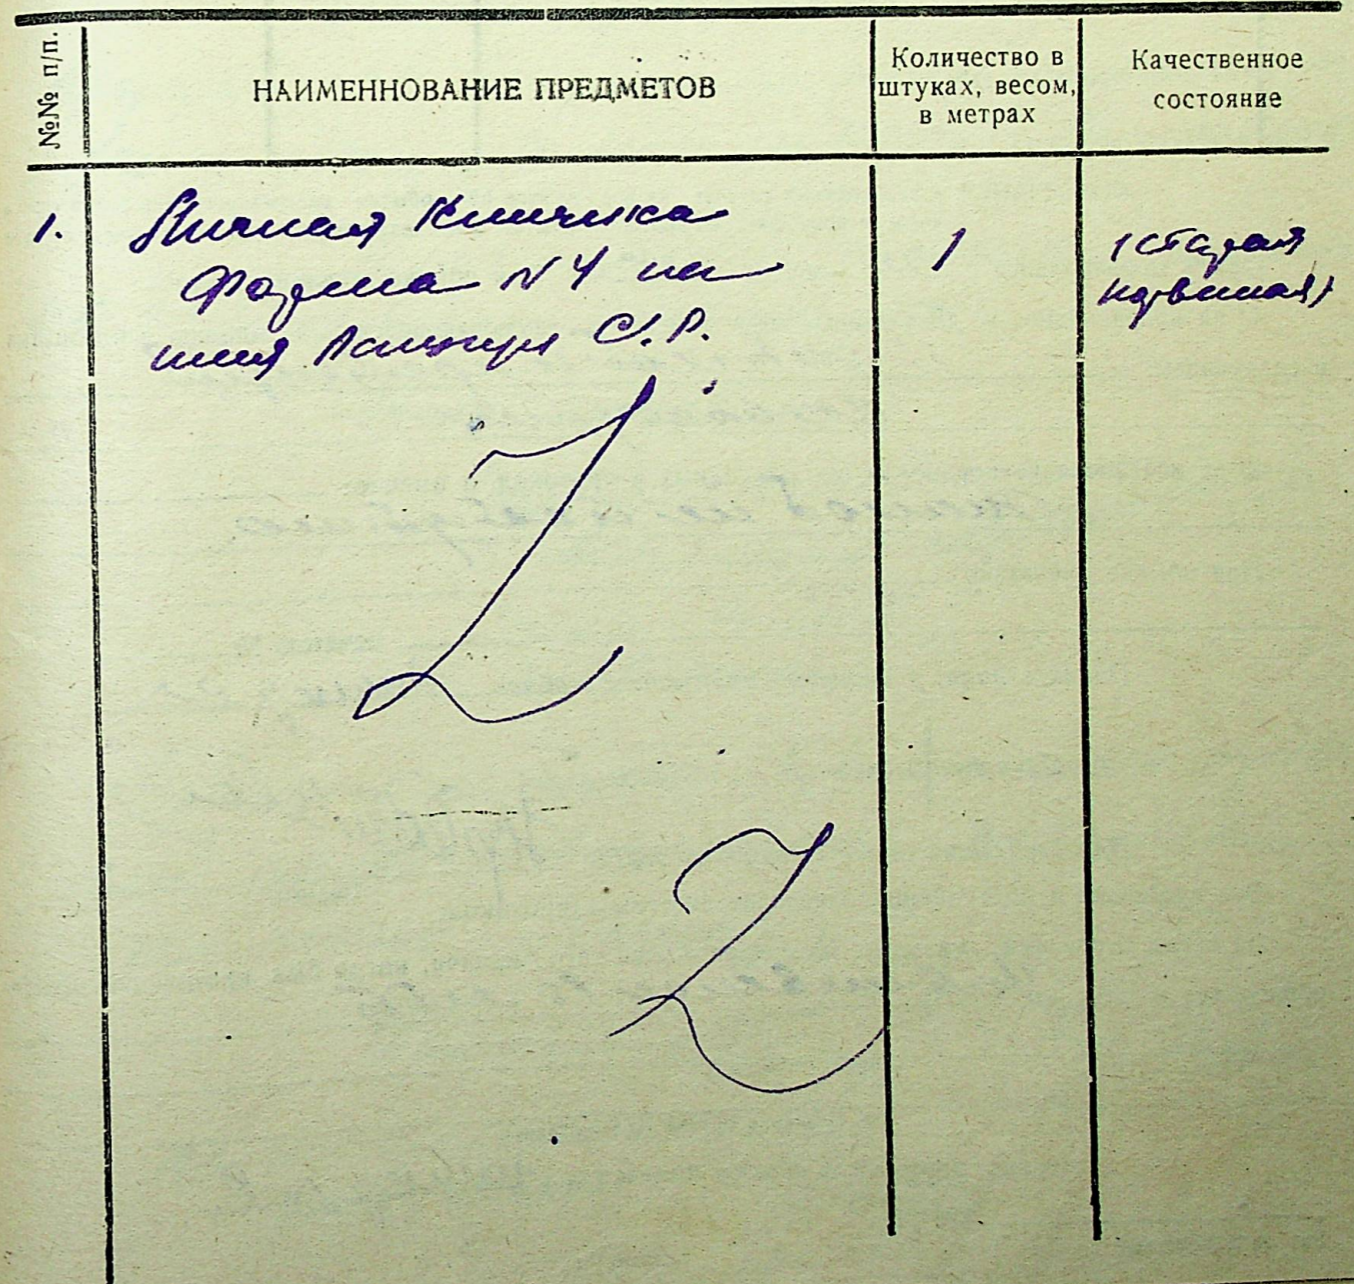 №№ п/п.
НАИМЕННОВАНИЕ ПРЕДМЕТОВ
Количество в
штуках, весом,
в метрах
Качественное
состояние
1.
Личная Книжка
Форма N4 на
имя С.Р.
1
(старая
)